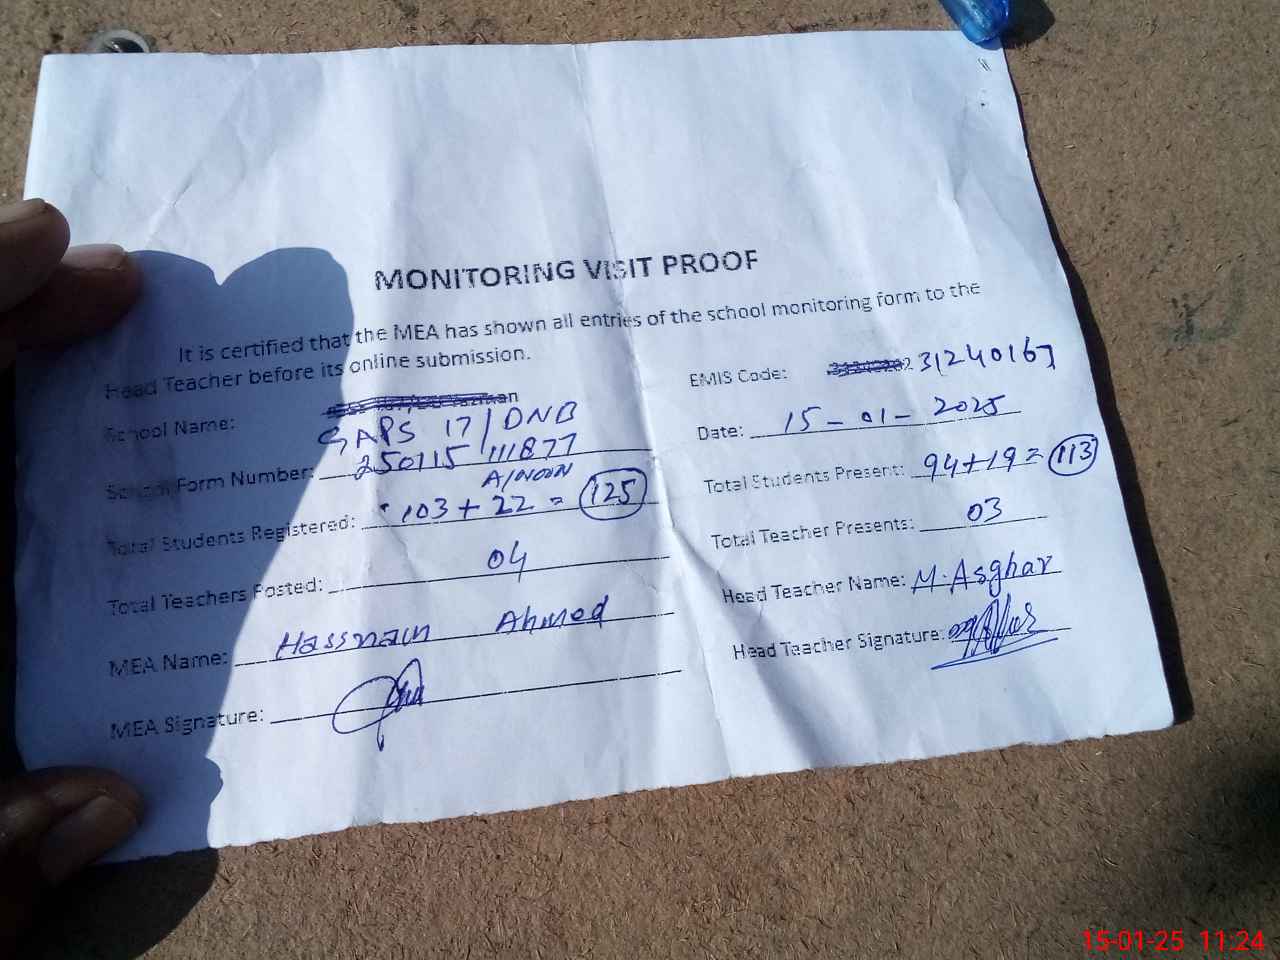 MONITORING VISIT PROOF
It is certified that the MEA has shown all entries of the school monitoring form to the
Head Teacher before its online submission.
EMIS Code: 31240167
School Name: GAPS 17/DNB
Date: 15-01-2025
School Form Number: 250115/111877
Total Students Present: 94+19=113
A/NOON
Total Students Registered: 103+22=125
Total Teacher Presents: 03
Total Teachers Posted: 04
Head Teacher Name: M.Asghar
MEA Name: Hassnain Ahmed
Head Teacher Signature:
MEA Signature:
15-01-25 11:24